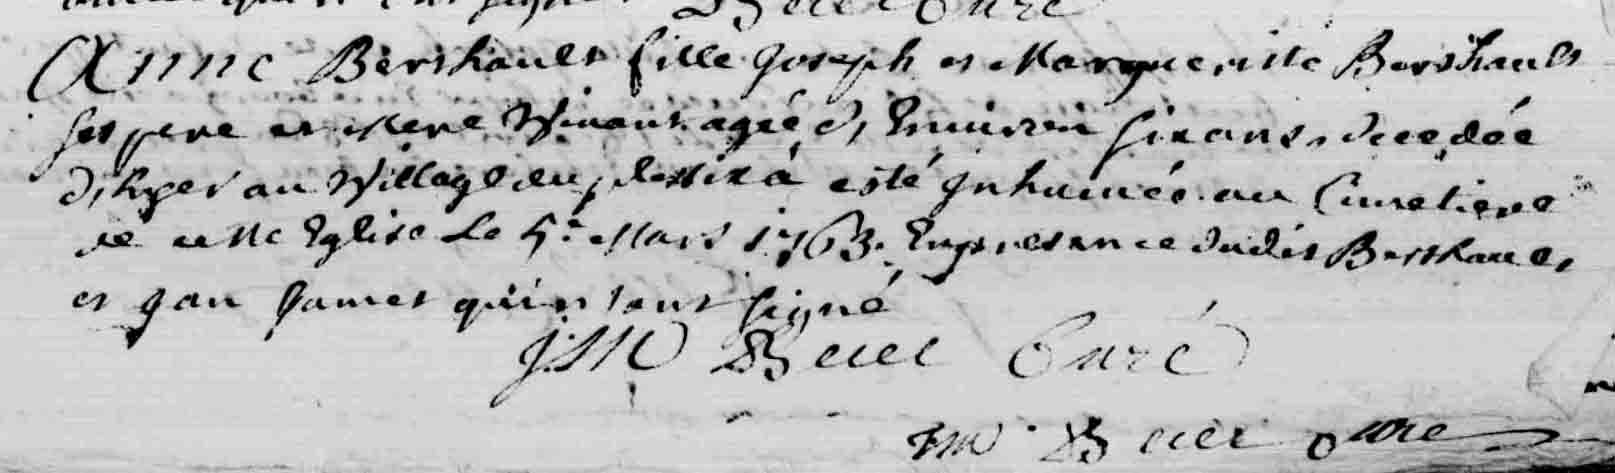 Curé
Anne Berthault fille Joseph et Margueritte Berthault
ses pere et mere vivant agée d'environ six ans decedée
d'hyer au village du a esté inhumée au Cimetiere
de cette Eglise le 5e Mars 1763. En presence dudit Berthault
et Jan Jamet qui n'ont signé
J:M Curé
JM